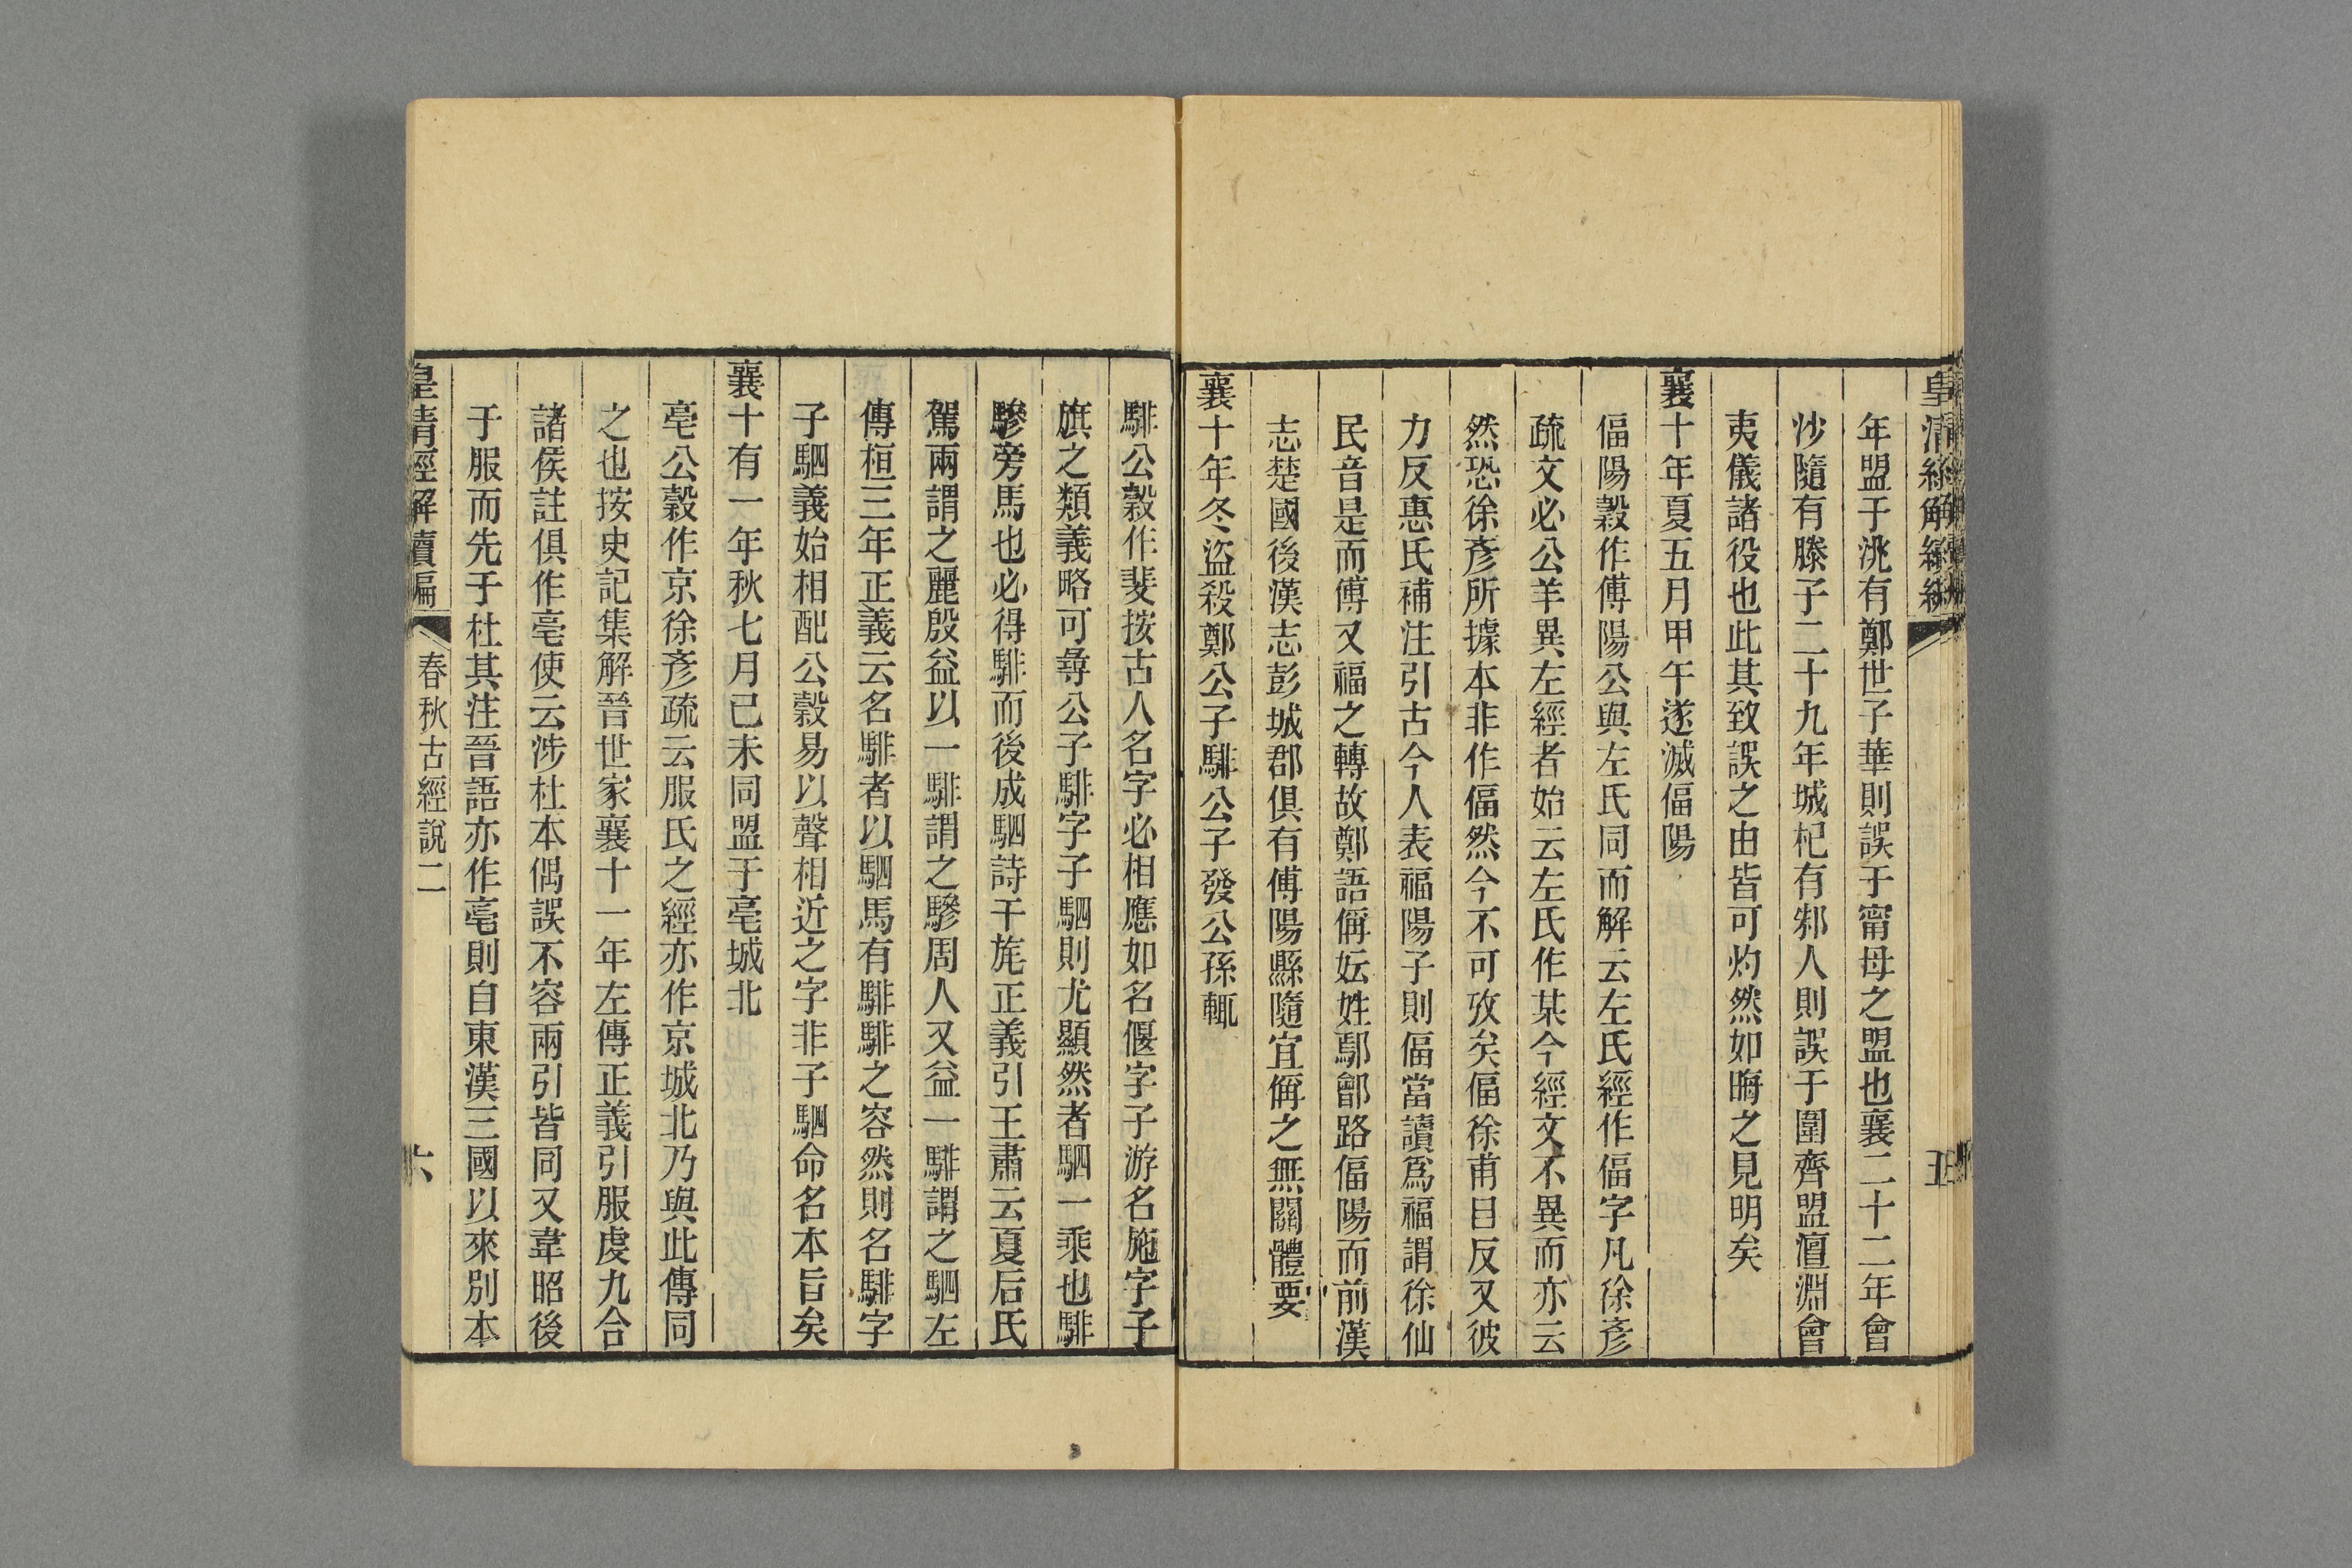 年盟于洮有鄭世子華則誤于甯母之盟也襄二十二年會
沙隨有滕子二十九年城杞有邾人則誤于圍齊盟澶淵會
夷儀諸役也此其致誤之由皆可灼然如晦之見明矣
襄十年夏五月甲午遂滅偪陽
偪陽穀作傅陽公與左氏同而解云左氏經作偪字凡徐彥
疏文必公羊異左經者始云左氏作某今經文不異而亦云
然恐徐彥所據本非作偪然今不可攷矣偪徐甫目反又彼
力反惠氏補注引古今人表福陽子則偪當讀爲福謂徐仙
民音是而傅又福之轉故鄭語偁妘姓鄢鄶路偪陽而前漢
志楚國後漢志彭城郡俱有傅陽縣隨宜偁之無關體要
襄十年冬盜殺鄭公子騑公子發公孫輒
騑公穀作斐按古人名字必相應如名偃字子游名施字子
旗之類義略可尋公子騑字子駟則尤顯然者駟一乘也騑
驂旁馬也必得騑而後成駟詩干旄正義引王肅云夏后氏
駕兩謂之麗殷益以一騑謂之驂周人又益一騑謂之駟左
傳桓三年正義云名騑者以駟馬有騑騑之容然則名騑字
子駟義始相配公穀易以聲相近之字非子駟命名本旨矣
襄十有一年秋七月己未同盟于亳城北
亳公穀作京徐彥疏云服氏之經亦作京城北乃與此傳同
之也按史記集解晉世家襄十一年左傳正義引服虔九合
諸侯註俱作亳使云涉杜本偶誤不容兩引皆同又韋昭後
于服而先于杜其注晉語亦作亳則自東漢三國以來別本
皇清經解續編 春秋古經說二 六